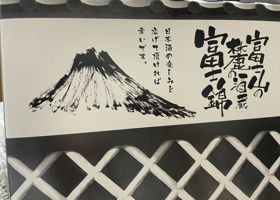 富士山の
麓の酒蔵
富士錦
日本酒の楽しみを
広げて頂ければ
幸いです。